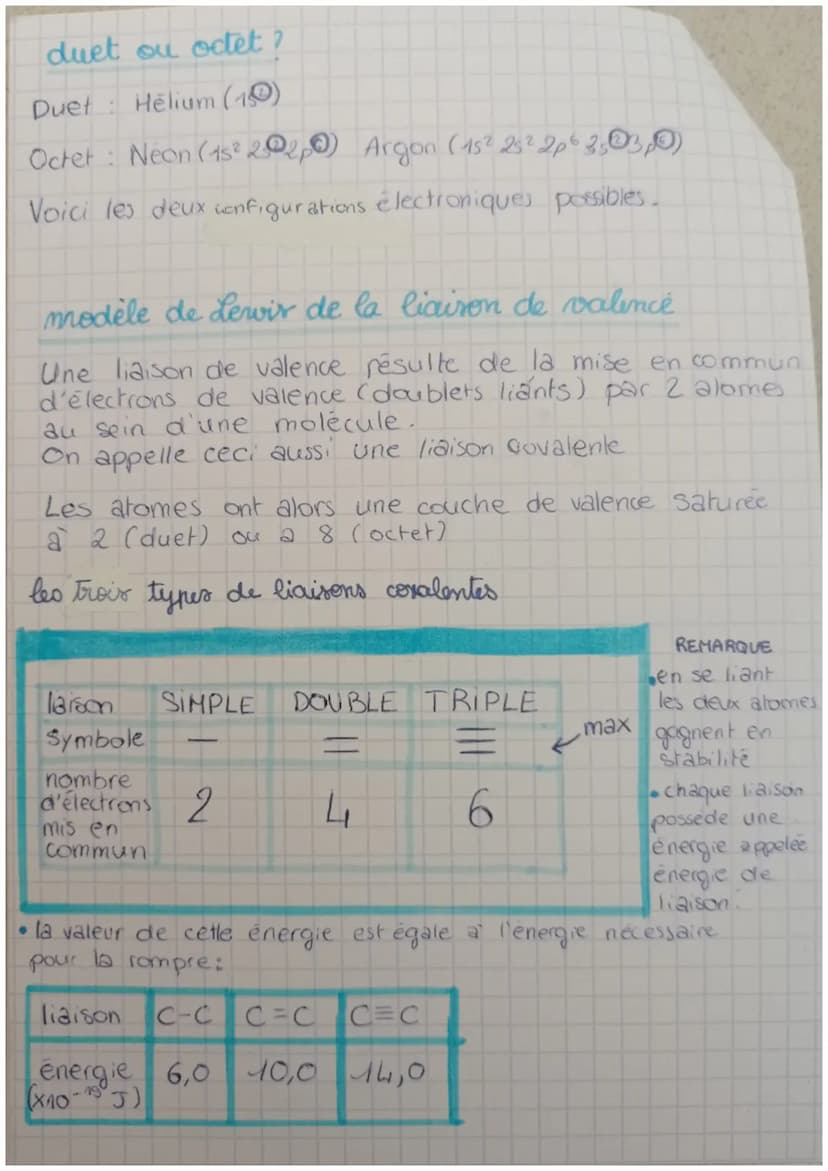 duet ou octet ?
Duet : Hélium (1s②)
Octet : Néon (1s² 2s②2p⑥) Argon (1s² 2s² 2p⁶ 3s②3p⑥)
Voici les deux configurations électroniques possibles.
modèle de Lewis de la liaison de valence
Une liaison de valence résulte de la mise en commun
d'électrons de valence (doublets liants) par 2 atomes
au sein d'une molécule.
On appelle ceci aussi une liaison covalente
Les atomes ont alors une couche de valence saturée
à 2 (duet) ou à 8 (octet)
les trois types de liaisons covalentes
liaison SIMPLE DOUBLE TRIPLE
Symbole — = ≡ ← max
nombre
d'électrons
mis en
commun
2 4 6
REMARQUE
•en se liant
les deux atomes
gagnent en
stabilité
• chaque liaison
possède une
énergie appelée
énergie de
liaison.
• la valeur de cette énergie est égale à l'énergie nécessaire
pour la rompre :
liaison C-C C=C C≡C
énergie 6,0 10,0 14,0
(×10⁻¹⁹ J)